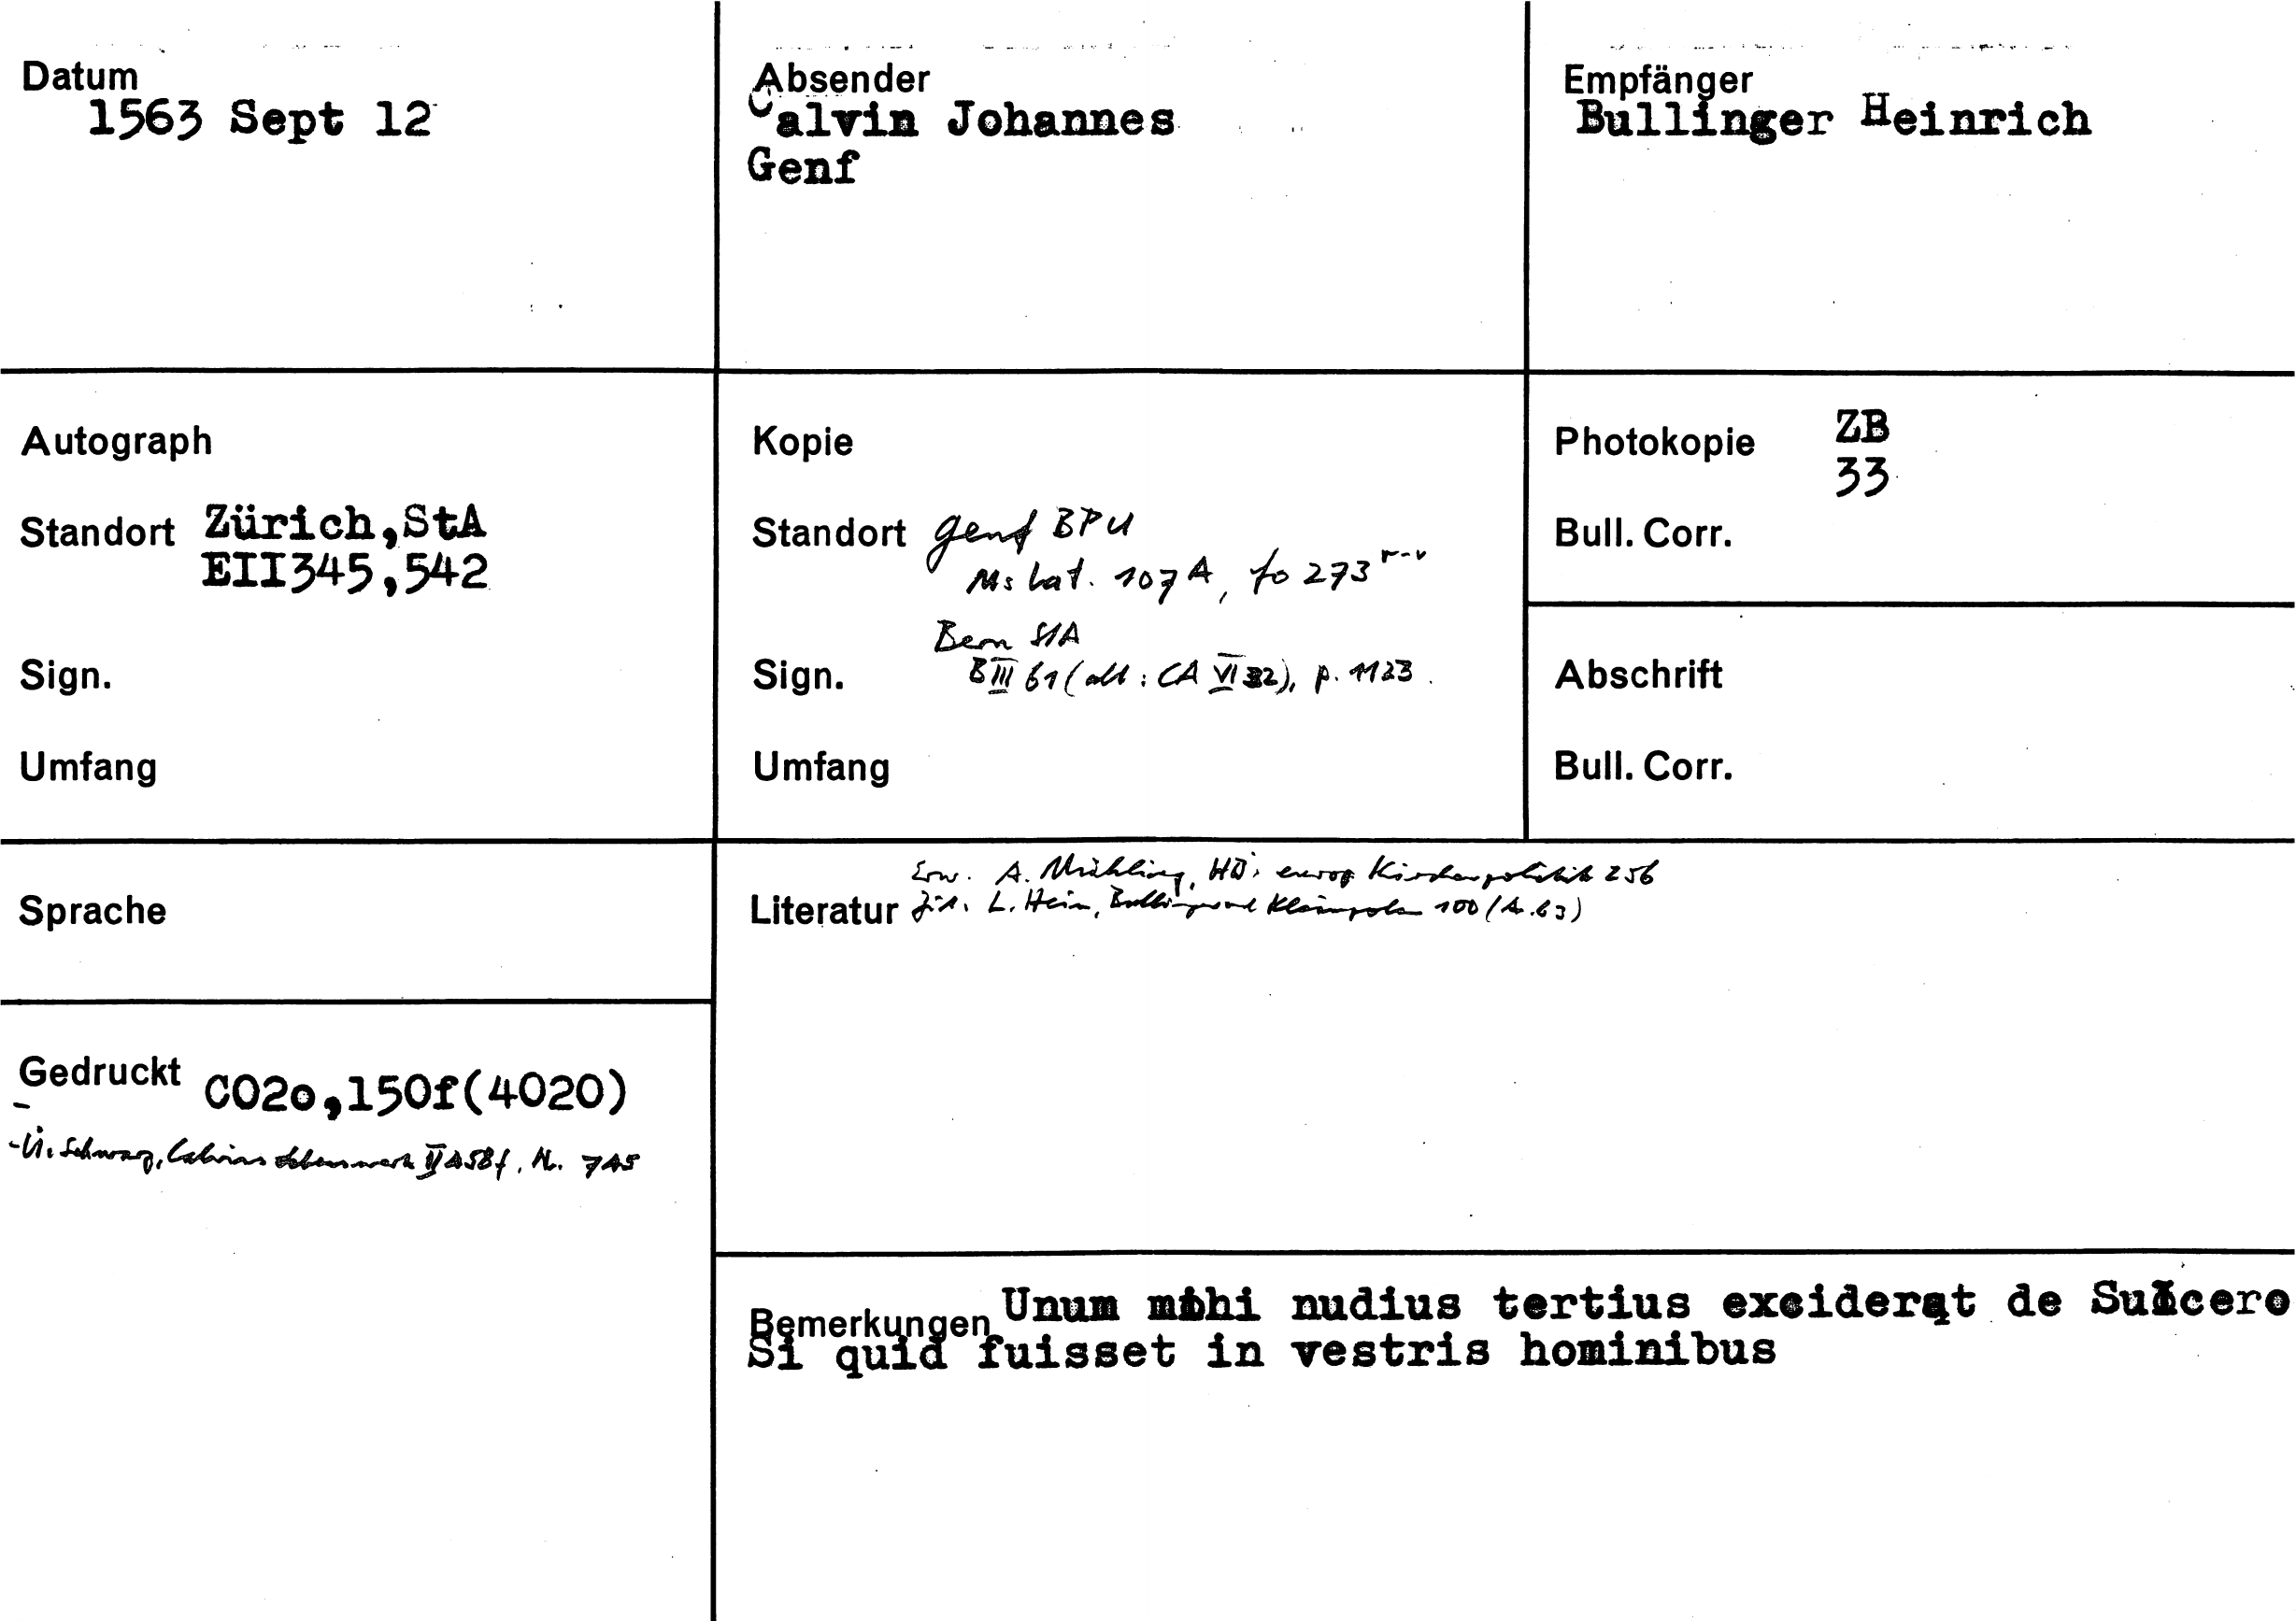 Datum
1563 Sept 12
Absender
Calvin Johannes
Genf
Empfänger
Bullinger Heinrich
Autograph
Standort Zürich,StA
EII345,542
Sign.
Umfang
Kopie
Standort Genf BPU
Ms lat. 107A, fo 273 r-v
Bern StA
Sign. B III 61 (alt: CA VI 32), p. 1123.
Umfang
Photokopie ZB
33
Bull. Corr.
Abschrift
Bull. Corr.
Sprache
Erw. A. Mühling, HBs europ Kirchenpolitik 256
Literatur Zit. L. Hein, Bullinger und Kleinpolen 100 (A. 63)
Gedruckt CO20,150f(4020)
-Ü: Schwarz, Calvins Lebenswerk II 458f, Nr. 745
Bemerkungen Unum mihi nudius tertius exciderat de Sulcero
Si quid fuisset in vestris hominibus